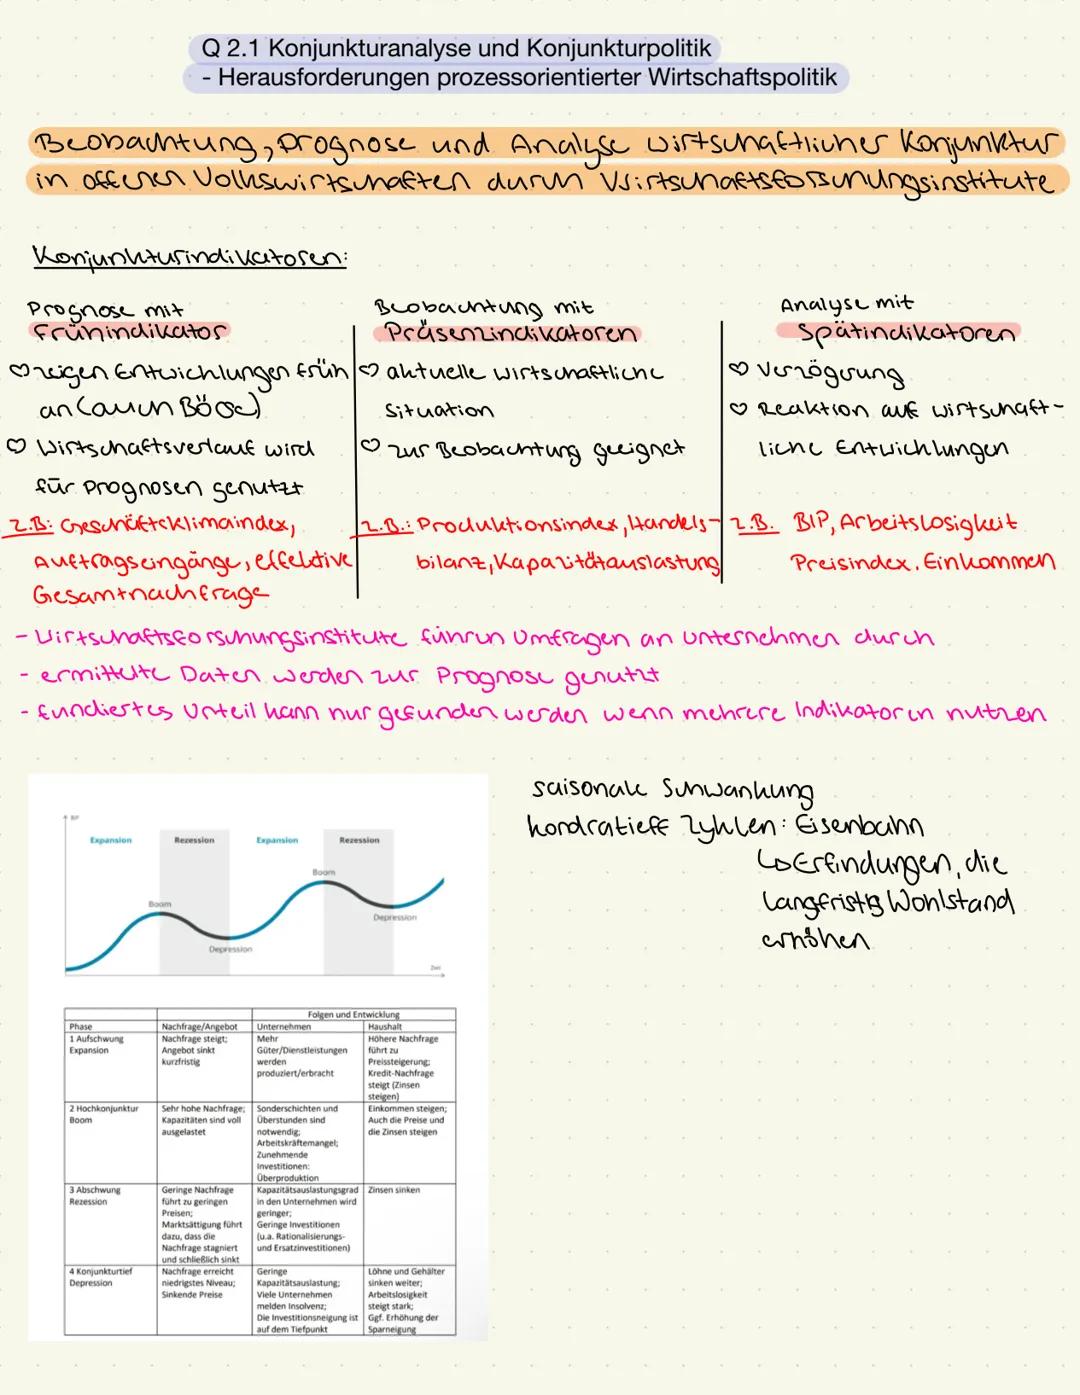 Q 2.1 Konjunkturanalyse und Konjunkturpolitik
- Herausforderungen prozessorientierter Wirtschaftspolitik
Beobachtung, Prognose und Analyse wirtschaftlicher Konjunktur
in offenen Volkswirtschaften durch Wirtschaftsforschungsinstitute
Konjunkturindikatoren:
Prognose mit
Frühindikator
♡ zeigen Entwicklungen früh
an (auch Börse)
♡ Wirtschaftsverlauf wird
für Prognosen genutzt
z.B: Geschäftsklimaindex,
Auftragseingänge, effektive
Gesamtnachfrage
Beobachtung mit
Präsenzindikatoren
♡ aktuelle wirtschaftliche
Situation
♡ zur Beobachtung geeignet
z.B.: Produktionsindex, Handels-
bilanz, Kapazitätauslastung
Analyse mit
Spätindikatoren
♡ Verzögerung
♡ Reaktion auf wirtschaft-
liche Entwicklungen
z.B. BIP, Arbeitslosigkeit
Preisindex, Einkommen
- Wirtschaftsforschungsinstitute führen Umfragen an Unternehmen durch
- ermittelte Daten werden zur Prognose genutzt
- fundiertes Urteil kann nur gefunden werden wenn mehrere Indikatoren nutzen
saisonale Schwankung
kondratieff Zyklen: Eisenbahn
↳ Erfindungen, die
langfristig Wohlstand
erhöhen
BIP
Expansion
Rezession
Expansion
Rezession
Boom
Boom
Depression
Depression
Zeit
Folgen und Entwicklung
Phase
Nachfrage/Angebot
Unternehmen
Haushalt
1 Aufschwung
Expansion
Nachfrage steigt;
Angebot sinkt
kurzfristig
Mehr
Güter/Dienstleistungen
werden
produziert/erbracht
Höhere Nachfrage
führt zu
Preissteigerung;
Kredit-Nachfrage
steigt (Zinsen
steigen)
2 Hochkonjunktur
Boom
Sehr hohe Nachfrage;
Kapazitäten sind voll
ausgelastet
Sonderschichten und
Überstunden sind
notwendig;
Arbeitskräftemangel;
Zunehmende
Investitionen:
Überproduktion
Einkommen steigen;
Auch die Preise und
die Zinsen steigen
3 Abschwung
Rezession
Geringe Nachfrage
führt zu geringen
Preisen;
Marktsättigung führt
dazu, dass die
Nachfrage stagniert
und schließlich sinkt
Kapazitätsauslastungsgrad
in den Unternehmen wird
geringer;
Geringe Investitionen
(u.a. Rationalisierungs-
und Ersatzinvestitionen)
Zinsen sinken
4 Konjunkturtief
Depression
Nachfrage erreicht
niedrigstes Niveau;
Sinkende Preise
Geringe
Kapazitätsauslastung;
Viele Unternehmen
melden Insolvenz;
Die Investitionsneigung ist
auf dem Tiefpunkt
Löhne und Gehälter
sinken weiter;
Arbeitslosigkeit
steigt stark;
Ggf. Erhöhung der
Sparneigung